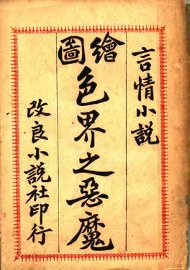 言情小説
繪圖
色界之惡魔
改良小說社印行